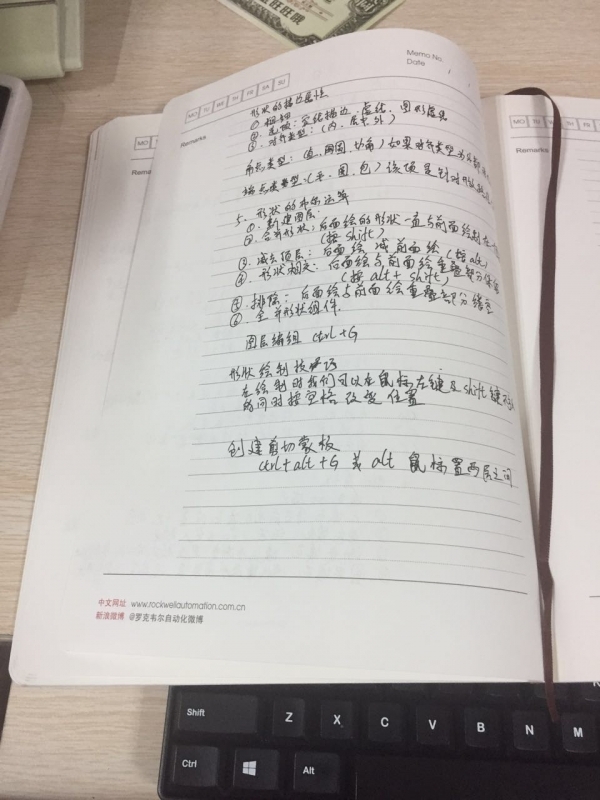 旺旺哦
Memo No.
Date
MO TU WE TH FR SA SU
Remarks
形状的描边属性
① 粗细
② 实线描边、虚线、圆形虚线
③ 对齐类型:(内、居中、外)
角点类型:(直、圆、切角)如果对齐类型为
端点类型:(平、圆、包)该项是针对
5. 形状的布尔运算
①. 新建图层:
②. 合并形状:后面绘的形状一直与前面绘制在
(按 shift)
③. 减去顶层:后面绘 减 前面绘 (按 alt)
④. 形状相交:后面绘与前面绘重叠部分保留
(按 alt + shift)
⑤. 排除:后面绘与前面绘重叠部分镂空
⑥. 合并形状组件.
图层编组 ctrl+G
形状绘制技巧
在绘制时我们可以在鼠标左键及shift键
的同时按空格改变位置
创建剪切蒙板
ctrl+alt+G 或 alt 鼠标置两层之间
中文网址 www.rockwellautomation.com.cn
新浪微博 @罗克韦尔自动化微博
MO
Rema
MO TU WE TH
Remarks
Shift Z X C V B N M
Ctrl Alt